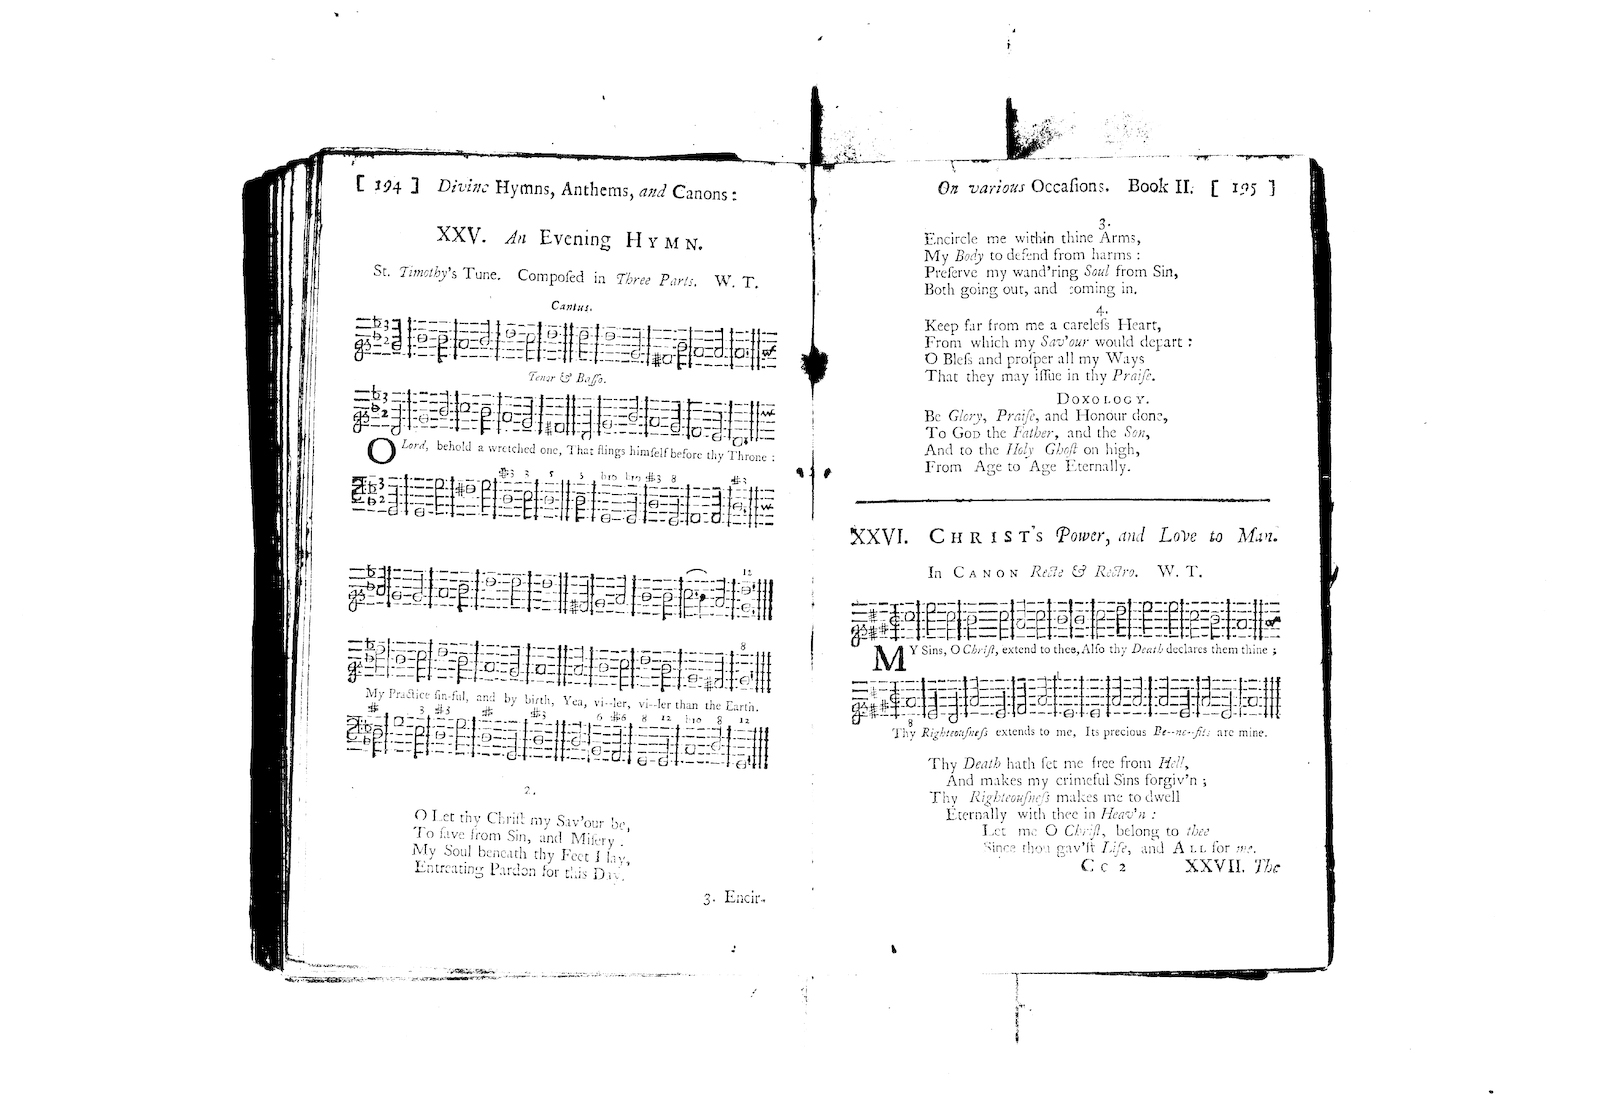 [ 194 ] Divine Hymns, Anthems, and Canons:
XXV. An Evening HYMN.
St. Timothy's Tune. Compoſed in Three Parts. W. T.
Cantus.
Tenor & Baſſo.
O Lord, behold a wretched one, That flings himſelf before thy Throne :
#3 3 5 5 b10 b10 #3 8 #3
12
8
My Practice ſin-ful, and by birth, Yea, vi--ler, vi--ler than the Earth.
# 3 #3 # #3 6 #6 8 12 b10 8 12
2.
O Let thy Chriſt my Sav'our be,
To ſave from Sin, and Miſery.
My Soul beneath thy Feet I lay,
Entreating Pardon for this Day.
3. Encir-
On various Occaſions. Book II. [ 195 ]
3.
Encircle me within thine Arms,
My Body to defend from harms :
Preſerve my wand'ring Soul from Sin,
Both going out, and coming in.
4.
Keep far from me a careleſs Heart,
From which my Sav'our would depart :
O Bleſs and proſper all my Ways
That they may iſſue in thy Praiſe.
DOXOLOGY.
Be Glory, Praiſe, and Honour done,
To GOD the Father, and the Son,
And to the Holy Ghoſt on high,
From Age to Age Eternally.
XXVI. CHRIST's Power, and Love to Man.
In CANON Recte & Rectro. W. T.
MY Sins, O Chriſt, extend to thee, Alſo thy Death declares them thine ;
8
Thy Righteouſneſs extends to me, Its precious Be--ne--fits are mine.
Thy Death hath ſet me free from Hell,
And makes my crimeful Sins forgiv'n ;
Thy Righteouſneſs makes me to dwell
Eternally with thee in Heav'n :
Let me O Chriſt, belong to thee
Since thou gav'ſt Life, and ALL for me.
C c 2 XXVII. The